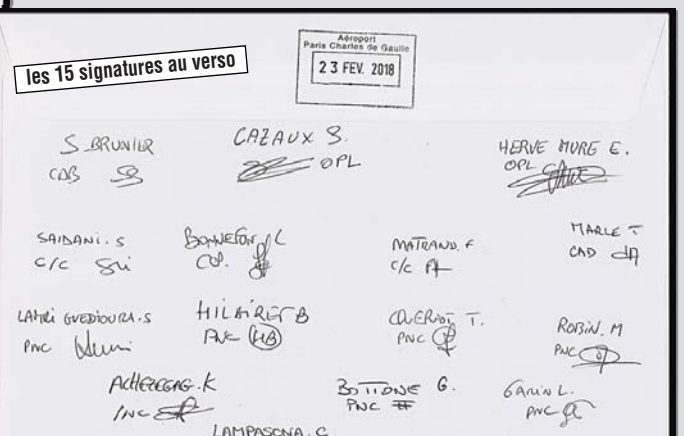 les 15 signatures au verso
Aéroport
Paris Charles de Gaulle
23 FEV. 2018
S BRUNIER
CDB
CAZAUX S.
OPL
HERVE MURE E.
OPL
SAIDANI. S
C/C
BONNEFON L
CCP.
MATRAND. F
C/C
MARLE T
CAD
LAMRI GUEDIOURA.S
PNC
HILAIRET B
PNC HB
T.
PNC
ROBIN. M
PNC
K
PNC
BOTTONE G.
PNC
GARIN L.
PNC
LAMPASONA. C